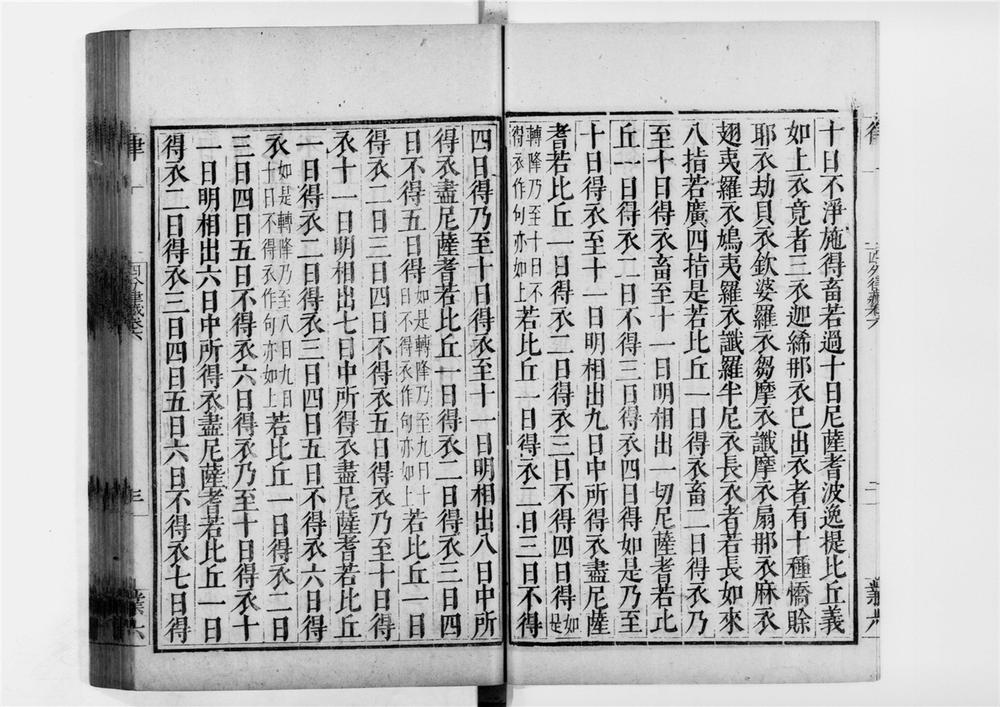 十日不淨施得畜若過十日尼薩耆波逸提比丘義
如上衣竟者三衣迦絺那衣已出衣者有十種憍賒
耶衣劫貝衣欽婆羅衣芻摩衣讖摩衣扇那衣麻衣
翅夷羅衣鳩夷羅衣讖羅半尼衣長衣者若長如來
八指若廣四指是若比丘一日得衣畜二日得衣乃
至十日得衣畜至十一日明相出一切尼薩耆若比
丘一日得衣二日不得三日得衣四日得如是乃至
十日得衣至十一日明相出九日中所得衣盡尼薩
耆若比丘一日得衣二日得衣三日不得四日得如是
轉降乃至十日不得衣作句亦如上若比丘一日得衣二日三日不得
四日得乃至十日得衣至十一日明相出八日中所
得衣盡尼薩耆若比丘一日得衣二日得衣三日四
日不得五日得如是轉降乃至九日十日不得衣作句亦如上若比丘一日
得衣二日三日四日不得衣五日得衣乃至十日得
衣十一日明相出七日中所得衣盡尼薩耆若比丘
一日得衣二日得衣三日四日五日不得衣六日得
衣如是轉降乃至八日九日十日不得衣作句亦如上若比丘一日得衣二日
三日四日五日不得衣六日得衣乃至十日得衣十
一日明相出六日中所得衣盡尼薩耆若比丘一日
得衣二日得衣三日四日五日六日不得衣七日得
律一
四分律藏卷六
三
業六